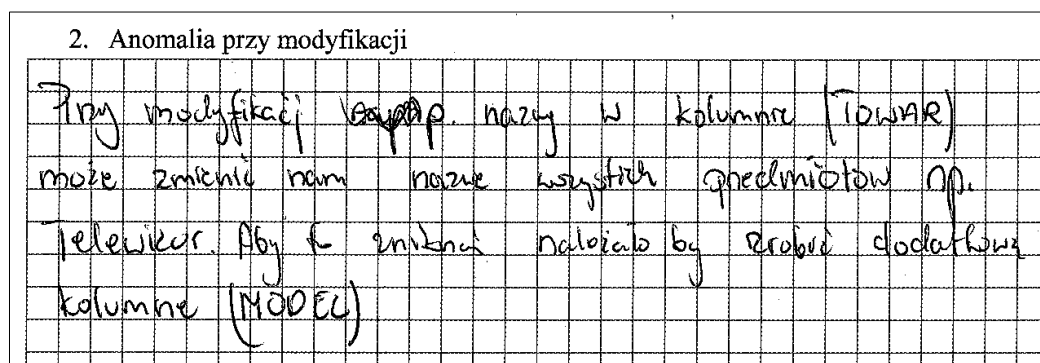 2. Anomalia przy modyfikacji
Przy modyfikacji np. nazwy w kolumnie (TOWAR)
może zmienić nam nazwę wszystkich przedmiotów np.
Telewizor. Aby zniknąć należało by zrobić dodatkową
kolumnę (MODEL)